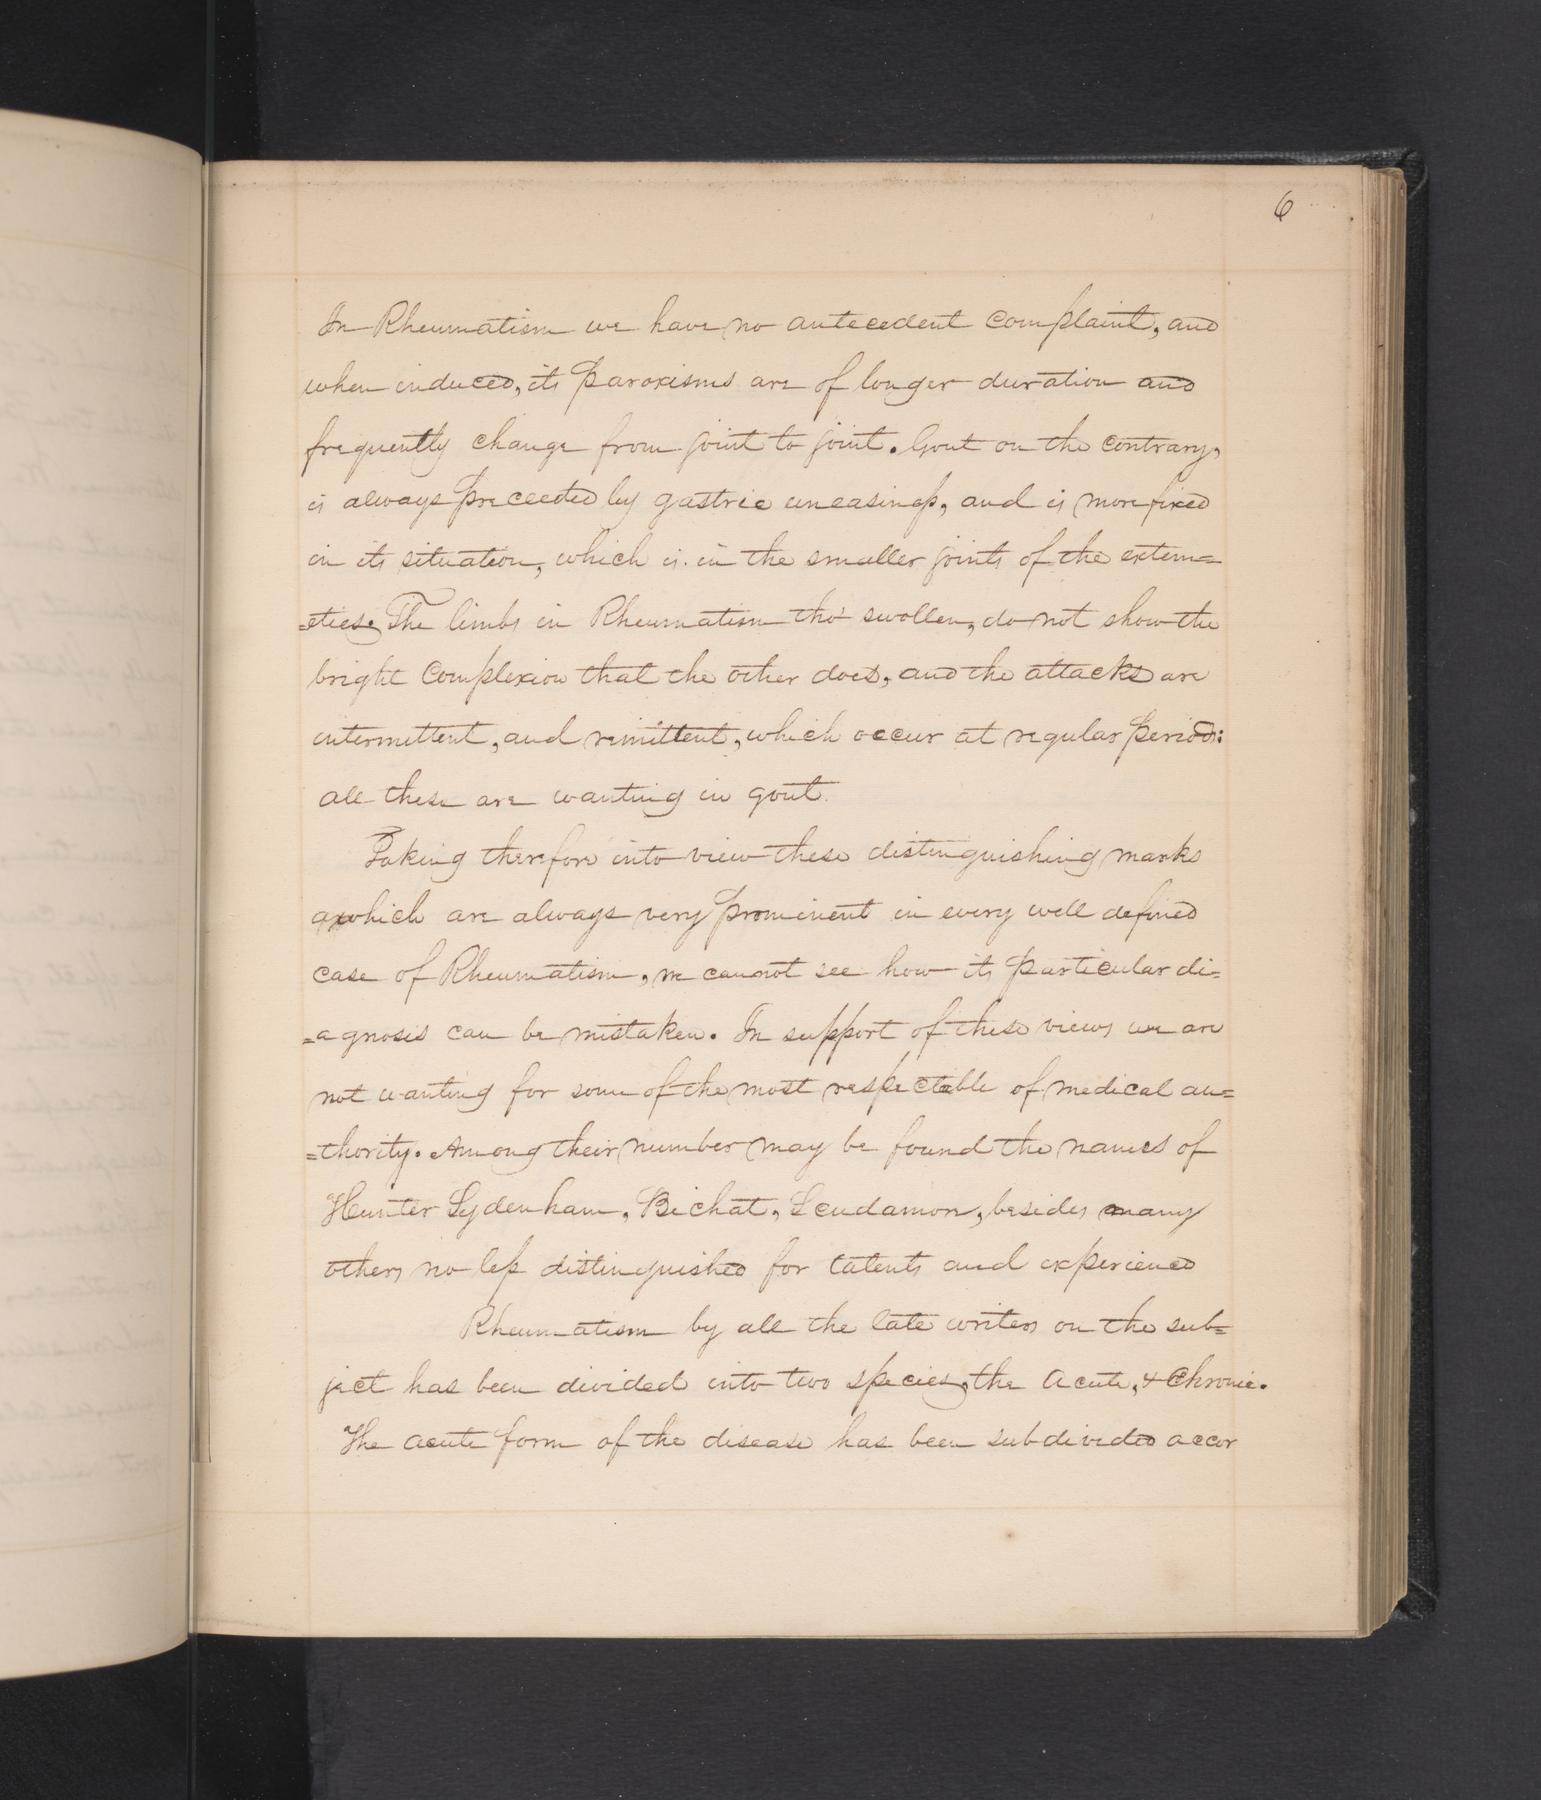 6
In Rheumatism we have no antecedent complaint, and
when induced, its paroxisms are of longer duration and
frequently change from joint to joint. Gout on the contrary,
is always preceeded by gastric uneasiness, and is more fixed
in its situation, which is in the smaller joints of the extem=
=eties. The limbs in Rheumatism tho' swollen, do not show the
bright complexion that the other does, and the attacks are
intermittent, and remittent, which occur at regular periods:
all these are wanting in gout.
Taking therefore into view these distinguishing marks
which are always very prominent in every well defined
case of Rheumatism, we cannot see how its particular di=
=agnosis can be mistaken. In support of these views we are
not wanting for some of the most respectable of medical au=
=thority. Among their number may be found the names of
Hunter Sydenham, Bichat, Scudamore, besides many
others no less distinguished for talents and experienced
Rheumatism by all the late writers on the sub=
ject has been divided into two species, the Acute, & Chronic.
The acute form of the disease has been subdivided accor